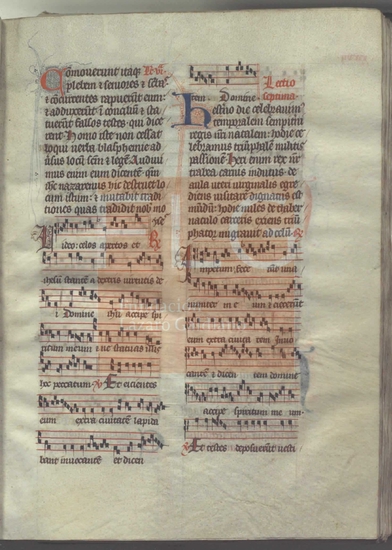 Commoverunt itaq; Lc̄ VI
plebem et seniores et scri
et concurrentes rapuerunt eum:
et adduxerunt in conciliū et sta
tuerūt falsos testes: qui dice
rent. Homo iste non cessat
loqui verba blasphemie ad
uersus locū scm̄ et legē. Audiui
mus eum eum dicentē: qm̄
ihc nazarenus hic destruet lo
cum istum: et mutabit tradi
tiones quas tradidit nob moy
ses R
Video celos apertos et
ihesū stantē a dextris virtutis dei
Domine ihū accipe spi
ritum meum et ne statuas illis
hoc peccatum. V Et eicientes
eum extra ciuitatē lapida
bant inuocantē et dicen
Lectio
Item Domine septima
Hesterno die celebraui
temporalem sempiterni
regis nr̄i natalem: hodie ce
lebramus triūphalē militis
passionē. Heri enim rex nr̄
trabea carnis indutus de
aula uteri virginalis egre
diens visitare dignatus est
mūdū: hodie miles de taber
naculo corporis exiens triū
phator migrauit ad celū. R
Impetum fece runt una
nimiter in e um et eiecerūt
eum extra ciuita tem Inuo
cantē et dicen tem domine
accipe spiritum me um
V Et testes deposuerūt vesti